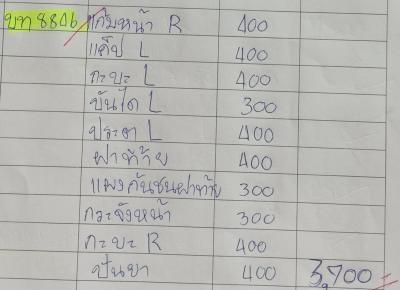 บท 8846 แก้มหน้า R 400
แค็ป L 400
กะบะ L 400
บันได L 300
ประตู L 400
ฝาท้าย 400
แผงกันชนฝาท้าย 300
กระจังหน้า 300
กะบะ R 400
ปั่นยา 400 3,700